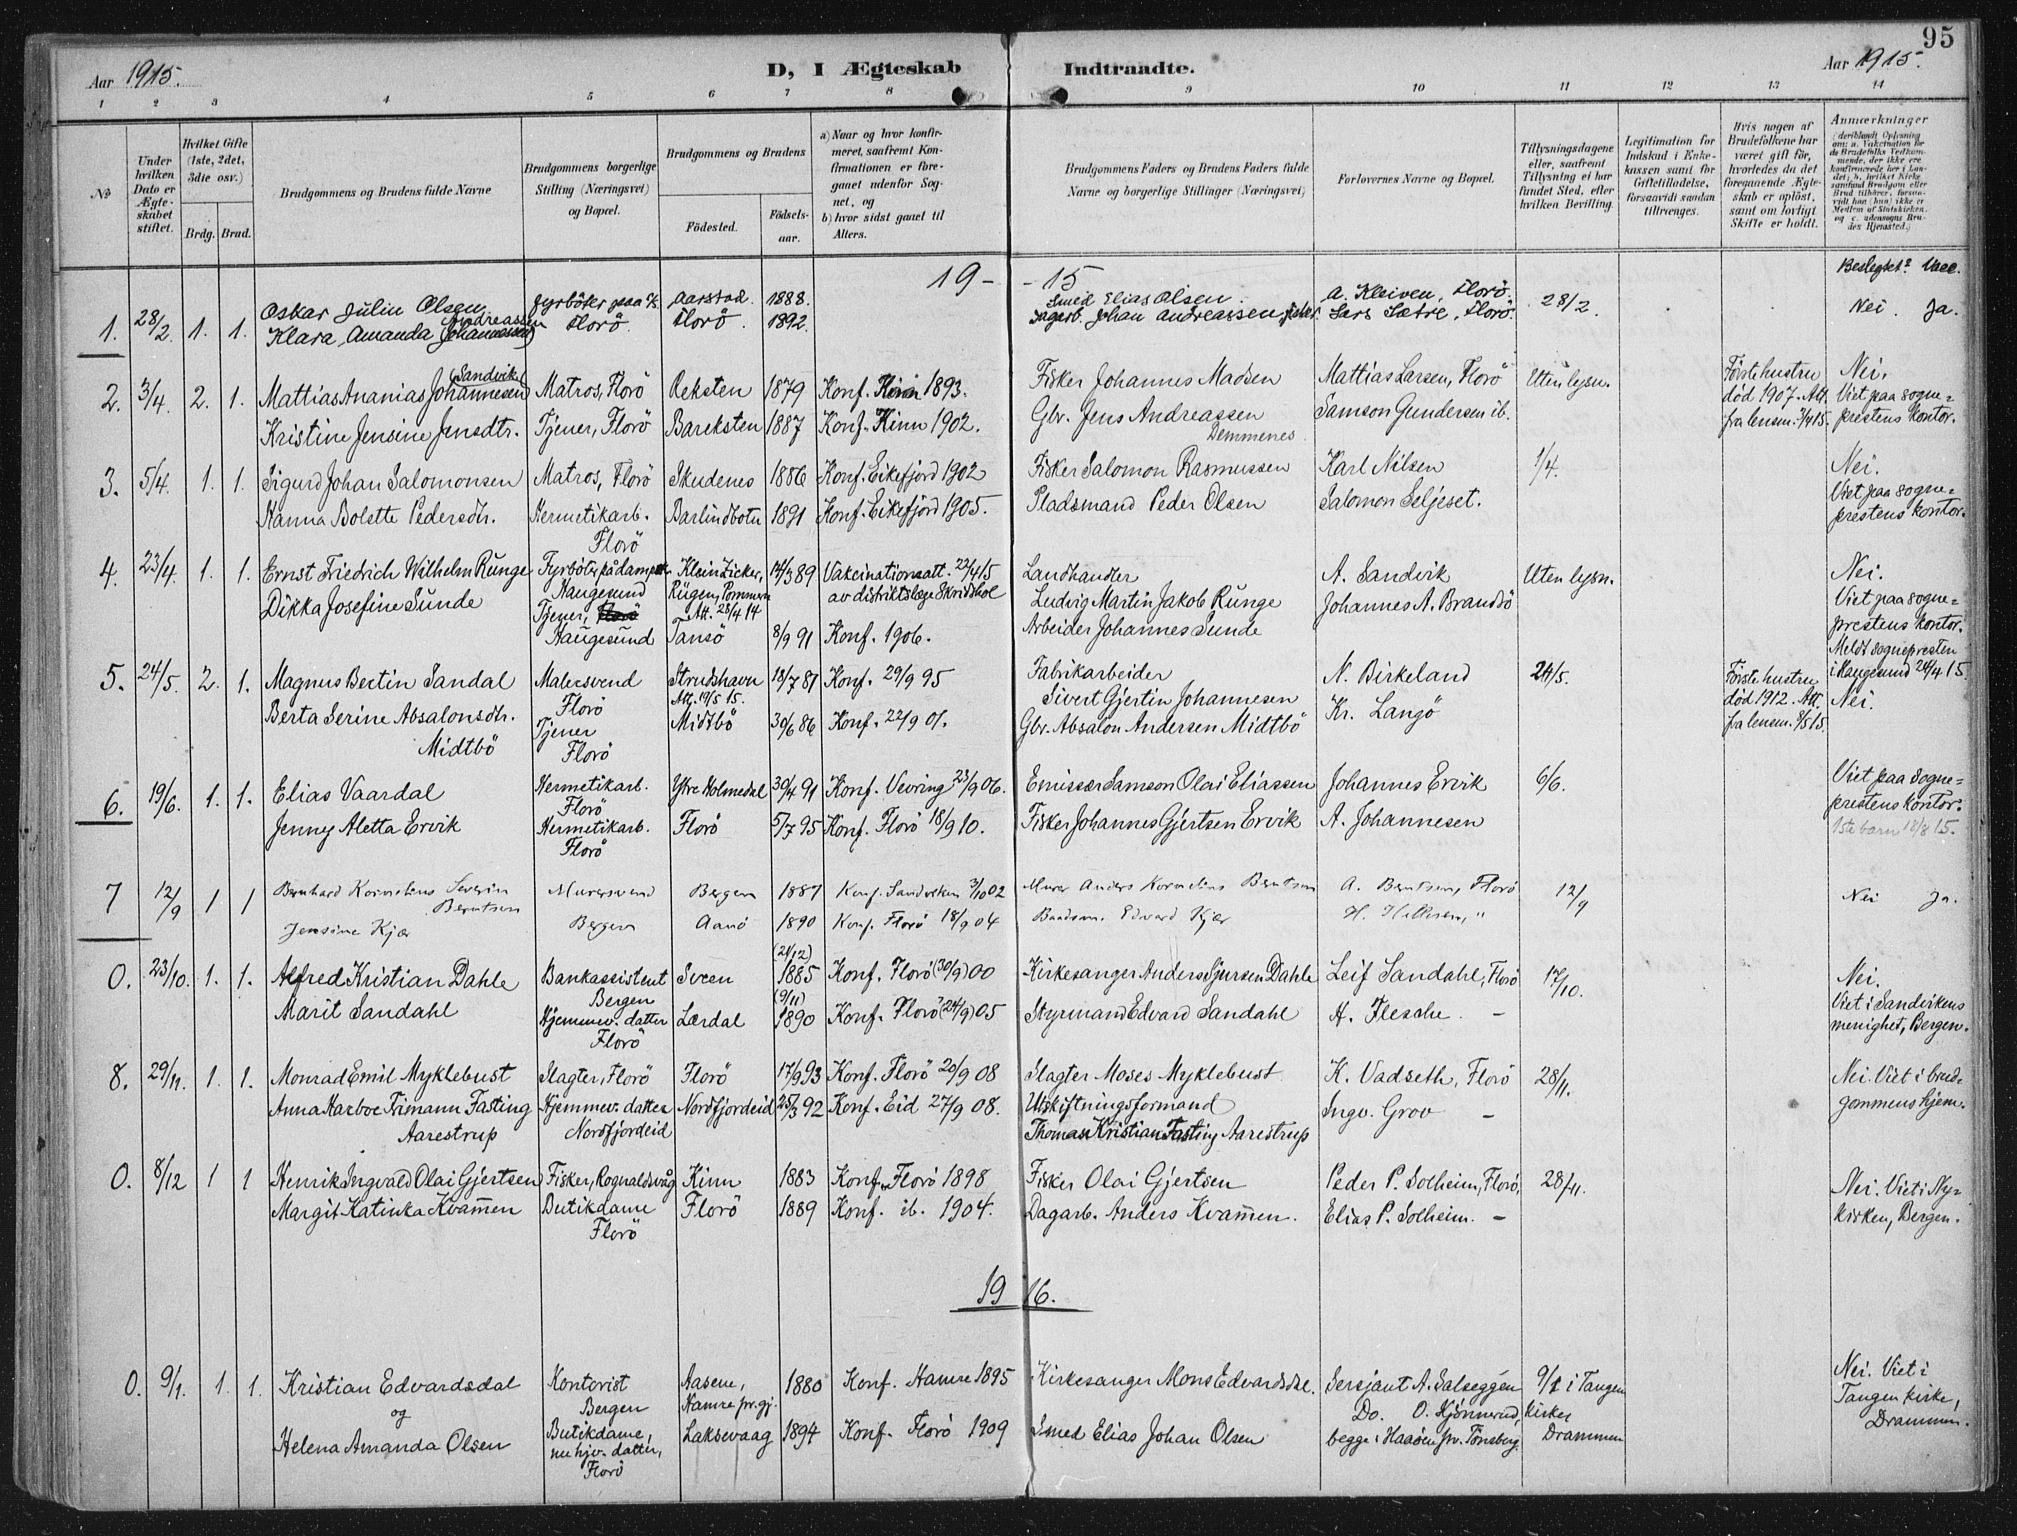 95
Aar 1915.
D, I Ægteskab
Indtraadte.
Aar 1915.
1 2 3 4 5 6 7 8 9 10 11 12 13 14
No
Under hvilken Dato er Ægteskabet stiftet.
Hvilket Gifte (1ste, 2det, 3die osv.)
Brdg. Brud.
Brudgommens og Brudens fulde Navne
Brudgommens borgerlige Stilling (Næringsvei) og Bopæl.
Brudgommens og Brudens
Födested.
Födselsaar.
a) Naar og hvor konfirmeret, saafremt Konfirmationen er foregaaet udenfor Sognet, og
b) hvor sidst gaaet til Alters.
Brudgommens Faders og Brudens Faders fulde Navne og borgerlige Stillinger (Næringsvei)
Forlovernes Navne og Bopæl.
Tillysningsdagene eller, saafremt Tillysning ei har fundet Sted, efter hvilken Bevilling.
Legitimation for Indskud i Enkekassen samt for Giftetilladelse, forsaavidt saadan tiltrænges.
Hvis nogen af Brudefolkene har været gift för, hvorledes da det foregaaende Ægteskab er oplöst, samt om lovligt Skifte er holdt.
Anmærkninger
(deriblandt Oplysning om: a. Vakcination for de Brudefolks Vedkommende, der ikke ere konfirmerede her i Landet; b. hvilket Kirkesamfund Brudgom eller Brud tilhörer, forsaavidt han (hun) ikke er Medlem af Statskirken, og c. udensogns Brudes Hjemsted.)
19 - - 15
Beslegtet? Vacc.
1. 28/2 1. 1. Oskar Julin Olsen Fyrböter paa Aarstad. 1888. Smed Elias Olsen. A. Kleiven, Florö. 28/2. Nei. Ja.
Klara Amanda Andreassen (Johannessen) Florö. Florö. 1892. Dagarb. Johan Andreassen Lars Sætre, Florö.
2. 3/4. 2. 1. Mattias Ananias Johannesen (Sandvik) Matros, Florö Oeksten 1879 Konf. Kinn 1893. Fisker Johannes Madsen Mattias Larsen, Florö Uten lysn. Förstehustru Nei.
död 1907. Att. Viet paa sogne=
Kristine Jensine Jensdtr. Tjener, Florö Bareksten 1887 Konf. Kinn 1902. Gbr. Jens Andreassen Samson Gundersen ib. fra lensm. 3/4 15. prestens kontor.
Demmenes
3. 5/4. 1. 1. Sigurd Johan Salomonsen Matros, Florö Skudenes 1886 Konf. Eikefjord 1902 Fisker Salomon Rasmussen Karl Nilsen 1/4. Nei.
Viet paa sogne=
Hanna Bolette Pedersdtr. Hermetikarb. Barlindbotn 1891 Konf. Eikefjord 1905. Pladsmand Peder Olsen Salomon Seljeset. prestens kontor.
Florö
4. 23/4. 1. 1. Ernst Friedrich Wilhelm Runge Fyrböter på damp Klein Zicker, 14/3 89 Vakcinationsatt. 22/4 15 Landhandler A. Sandvik Uten lysn. Nei.
Haugesund Rügen, Pommern av distriktslæge Skridshol Viet paa sogne=
Dikka Josefine Sunde Tjener, Florö Att. 28/4 14 Ludvig Martin Jakob Runge Johannes A. Brandsö prestens kontor.
Haugesund Tansö 8/9 91 Konf. 1906. Arbeider Johannes Sunde Meldt sognepresten
5. 24/5. 2. 1. Magnus Bertin Sandal Malersvend Strudshavn 18/7 81 Konf. 29/9 95 Fabrikarbeider N. Birkeland 24/5. Förstehustru i Haugesund 24/4 15.
Florö Att. 19/5 15. Sivert Gjertin Johannesen död 1912. Att. Nei.
Berta Serine Absalonsdtr. Tjener Midtbö 30/6 86 Konf. 22/9 01. Gbr. Absalon Andersen Midtbö Kr. Langö fra lensm. 8/5 15.
Midtbö Florö
6. 19/6. 1. 1. Elias Vaardal Hermetikarb. Ytre Holmedal 30/4 91 Konf. Vevring 23/9 06. Emissær Samson Olai Eliassen Johannes Ervik 6/6. Viet paa sogne=
Florö prestens kontor.
Jenny Aletta Ervik Hermetikarb. Florö 5/7 95 Konf. Florö 18/9 10. Fisker Johannes Gjertsen Ervik A. Johannesen 1ste barn 18/8 15.
Florö
7 12/9 1 1 Bernhard Kornelius Severin Murersvend Bergen 1887 Konf. Sandviken 3/10 02 Murer Anders Kornelius Berntsen A. Berntsen, Florö 12/9 Nei Ja.
Berntsen
Jensine Kjær Bergen Aanö 1890 Konf. Florö 18/9 04 Edvard Kjær "
0. 23/10. 1. 1. Alfred Kristian Dahle Bankassistent Sveen (21/12) 1885 Konf. Florö (30/9) 00 Kirkesanger Anders Sjursen Dahle Leif Sandahl, Florö 17/10. Nei.
Bergen Viet i Sandvikens
Marit Sandahl Hjemmev. datter Lærdal (9/11) 1890 Konf. Florö (24/9) 05 Styrmand Edvard Sandahl H. Flesche. - menighet, Bergen.
Florö
8. 29/11. 1. 1. Monrad Emil Myklebust Slagter, Florö Florö 17/9 93 Konf. Florö 20/9 08 Slagter Moses Myklebust K. Vadseth, Florö 28/11. Nei. Viet i brud-
Anna Harboe Frimann Fasting Hjemmev. datter Nordfjordeid 25/3 92 Konf. Eid 27/9 08. Utskiftningsformand Ingv. Grov - gommens hjem.
Aarestrup Nordfjordeid Thomas Kristian Fasting Aarestrup
0. 8/12 1 1 Henrik Ingvald Olai Gjertsen Fisker, Rognaldsvåg Kinn 1883 Konf. Florö 1898 Fisker Olai Gjertsen Peder P. Solheim, Florö, 28/11. Nei. Viet i Ny-
Margit Katinka Kvammen Butikdame Florö 1889 Konf. ib. 1904. Dagarb. Anders Kvammen. Elias P. Solheim. - kirken, Bergen.
Florö
19 16.
0. 9/1. 1. 1. Kristian Edvardsdal Kontorist Aasene, 1880 Konf. Hamre 1895 Kirkesanger Mons Edvardsdal. Sersjant A. Salseggen 9/1 i Tangen Nei. Viet i
og Bergen Hamre pr.gj. Do. O. Hjönnerud, Kirke Tangen kirke,
Helena Amanda Olsen Butikdame, Laksevaag 1894 Konf. Florö 1909 Smed Elias Johan Olsen begge i Haaöen pr. Tönsberg. Drammen Drammen.
nu hjv. datter,
Florö